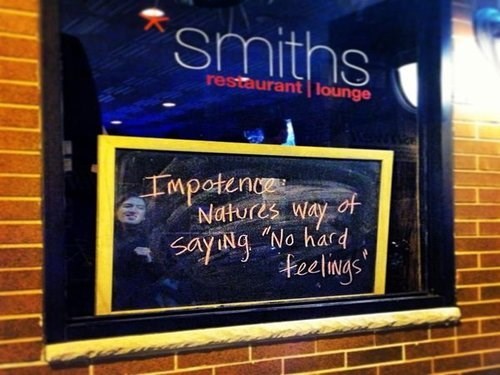 smiths
restaurant | lounge
Impotence:
Natures way of
saying "No hard
feelings"